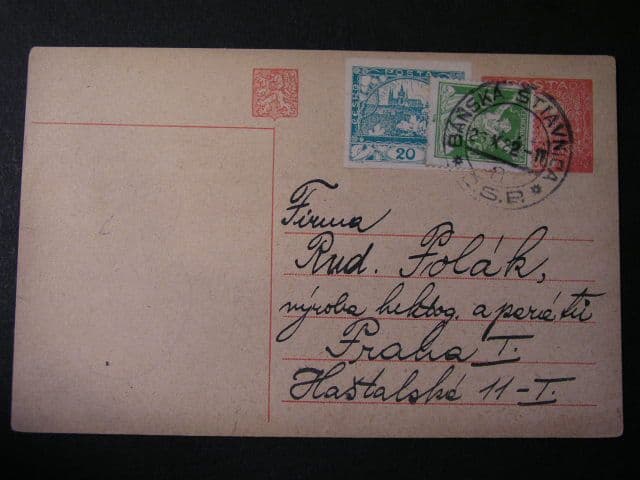 POŠTA
20
BANSKÁ ŠTIAVNICA
S.P.
Firma
Rud. Polák,
výroba hektog. aparátů
Praha I.
Haštalské 11-I.